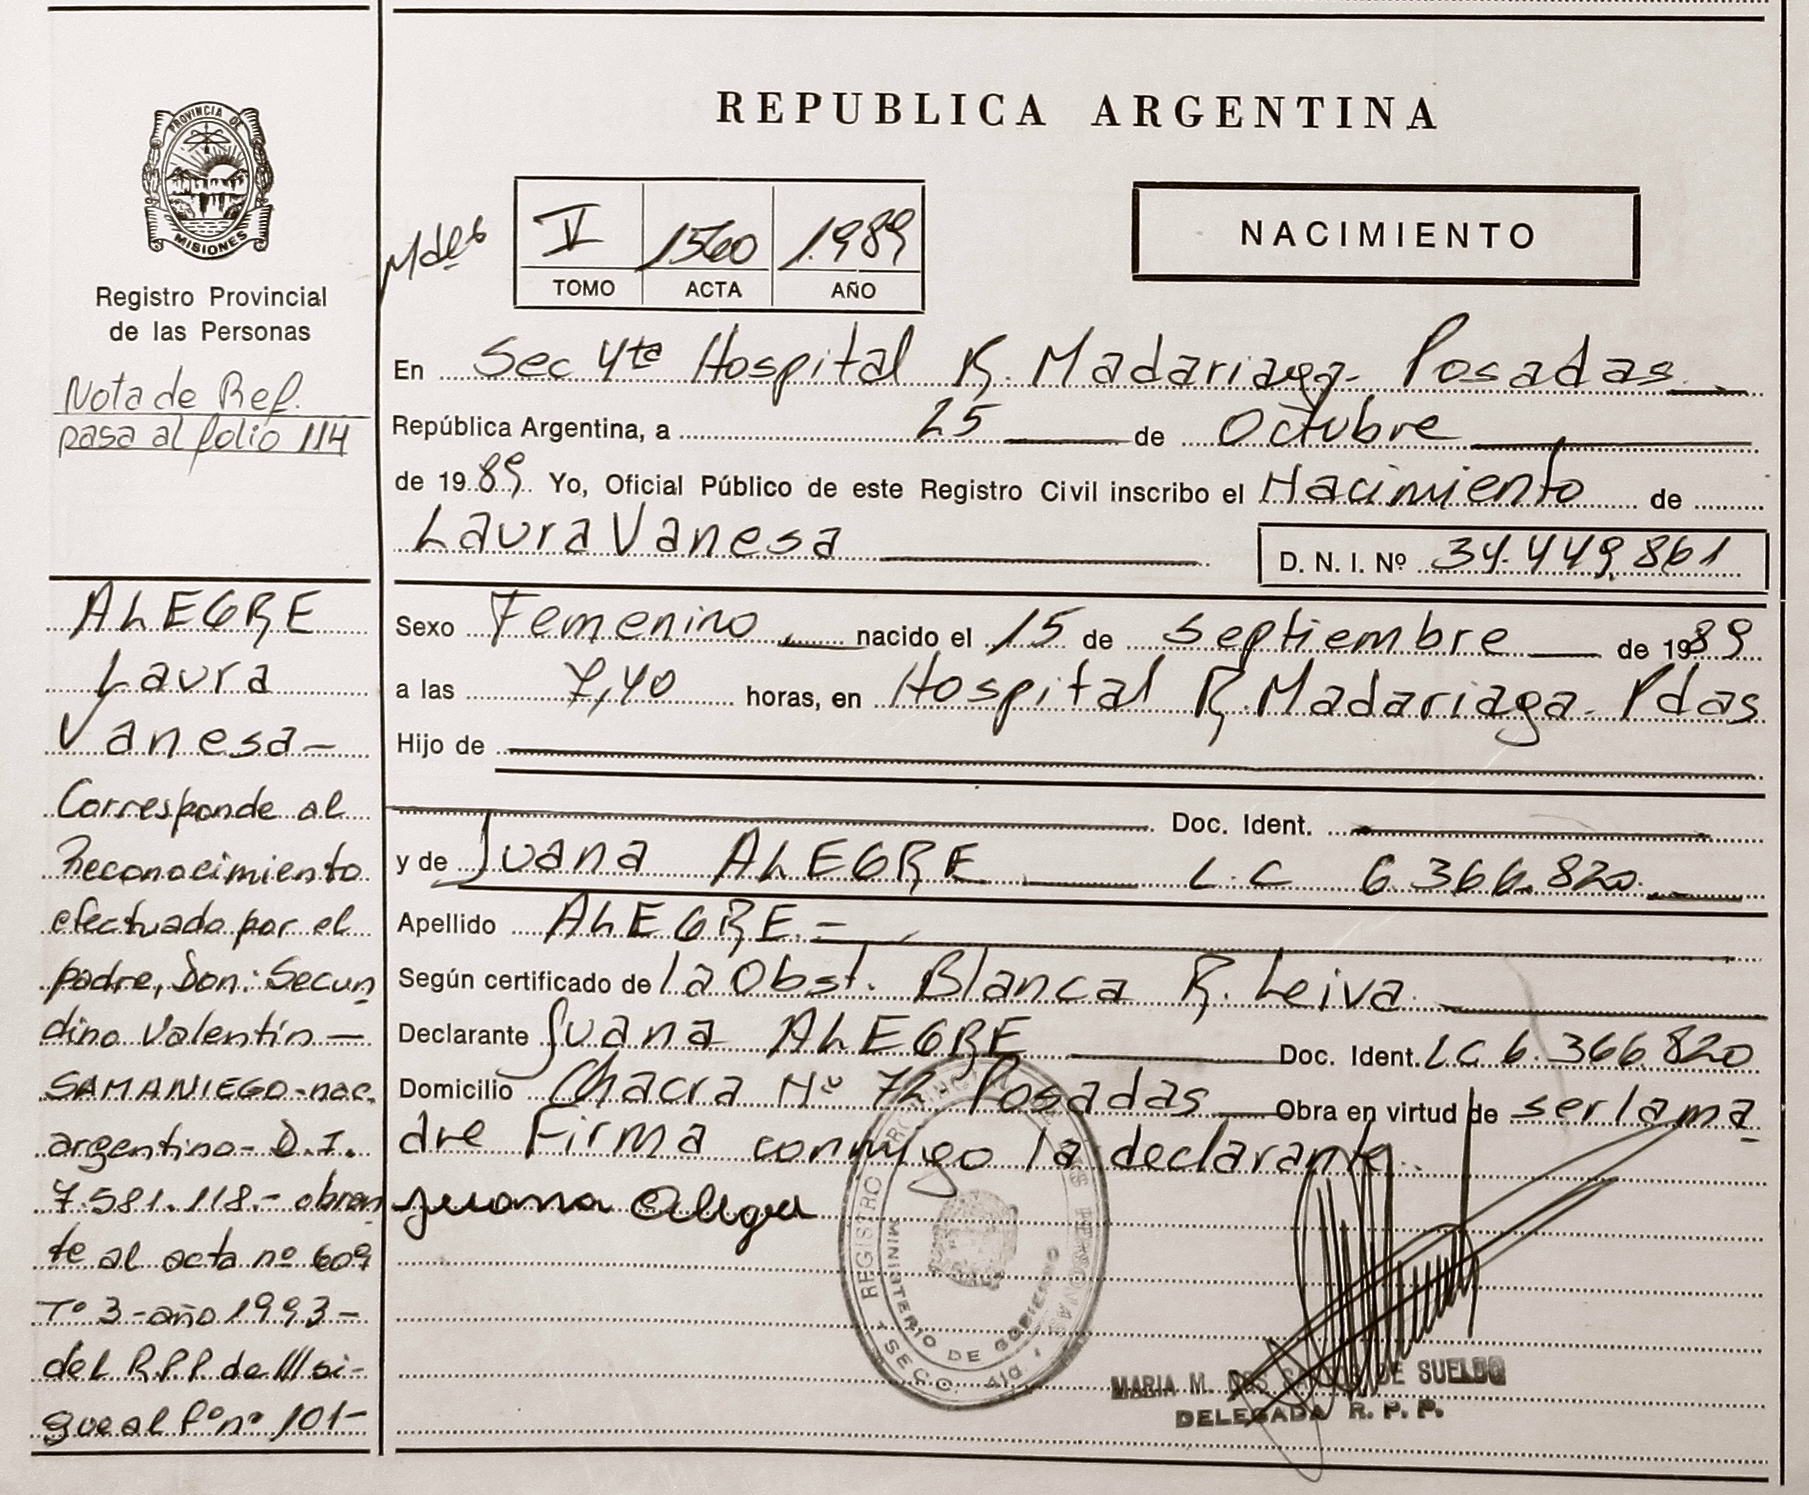 PROVINCIA DE
MISIONES
Registro Provincial
de las Personas
Nota de Ref.
pasa al folio 114
ALEGRE
Laura
Vanesa—
Corresponde al
Reconocimiento
efectuado por el
padre, Don: Secun
dino Valentín —
SAMANIEGO-nac.
argentino- D.I.
7.581.118.- obran
te al acta nº 609
Tº 3 - año 1993 -
del R.P.P. de Mll si-
gue al fº nº 101-
REPUBLICA ARGENTINA
V 1560 1.989
TOMO ACTA AÑO
NACIMIENTO
En Sec 4ta Hospital R. Madariaga- Posadas
República Argentina, a 25 de Octubre
de 1989 Yo, Oficial Público de este Registro Civil inscribo el Nacimiento de
Laura Vanesa
D. N. I. Nº 34.449.861
Sexo Femenino nacido el 15 de septiembre de 1989
a las 7,40 horas, en Hospital R. Madariaga- Pdas
Hijo de
Doc. Ident.
y de Juana ALEGRE L.C 6.366.820
Apellido ALEGRE.-
Según certificado de la Obst. Blanca R. Leiva
Declarante Juana ALEGRE Doc. Ident. LC 6.366.820
Domicilio Chacra Nº 72 Posadas Obra en virtud de ser la ma
dre Firma conmigo la declarante.
Juana Alegre
REGISTRO PROVINCIAL DE LAS PERSONAS
MINISTERIO DE GOBIERNO
SECC. 4ta.
MARIA M. DOS SANTOS DE SUELDO
DELEGADA R. P. P.